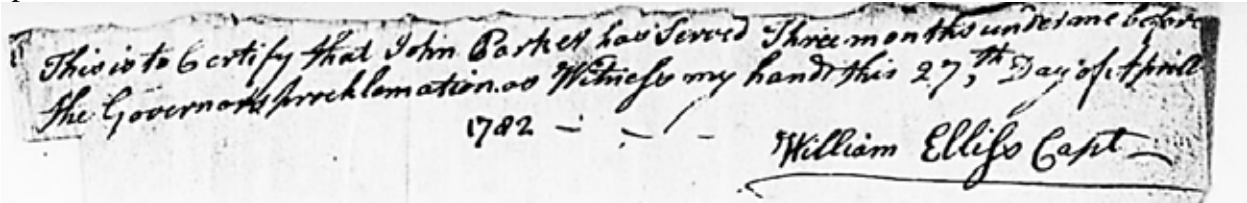 This is to Certify that John Parker has Served Three months under me before
the Governors procklomation. as Witness my hand this 27,th Day of Aprill
1782 - - -
William Elliss Capt